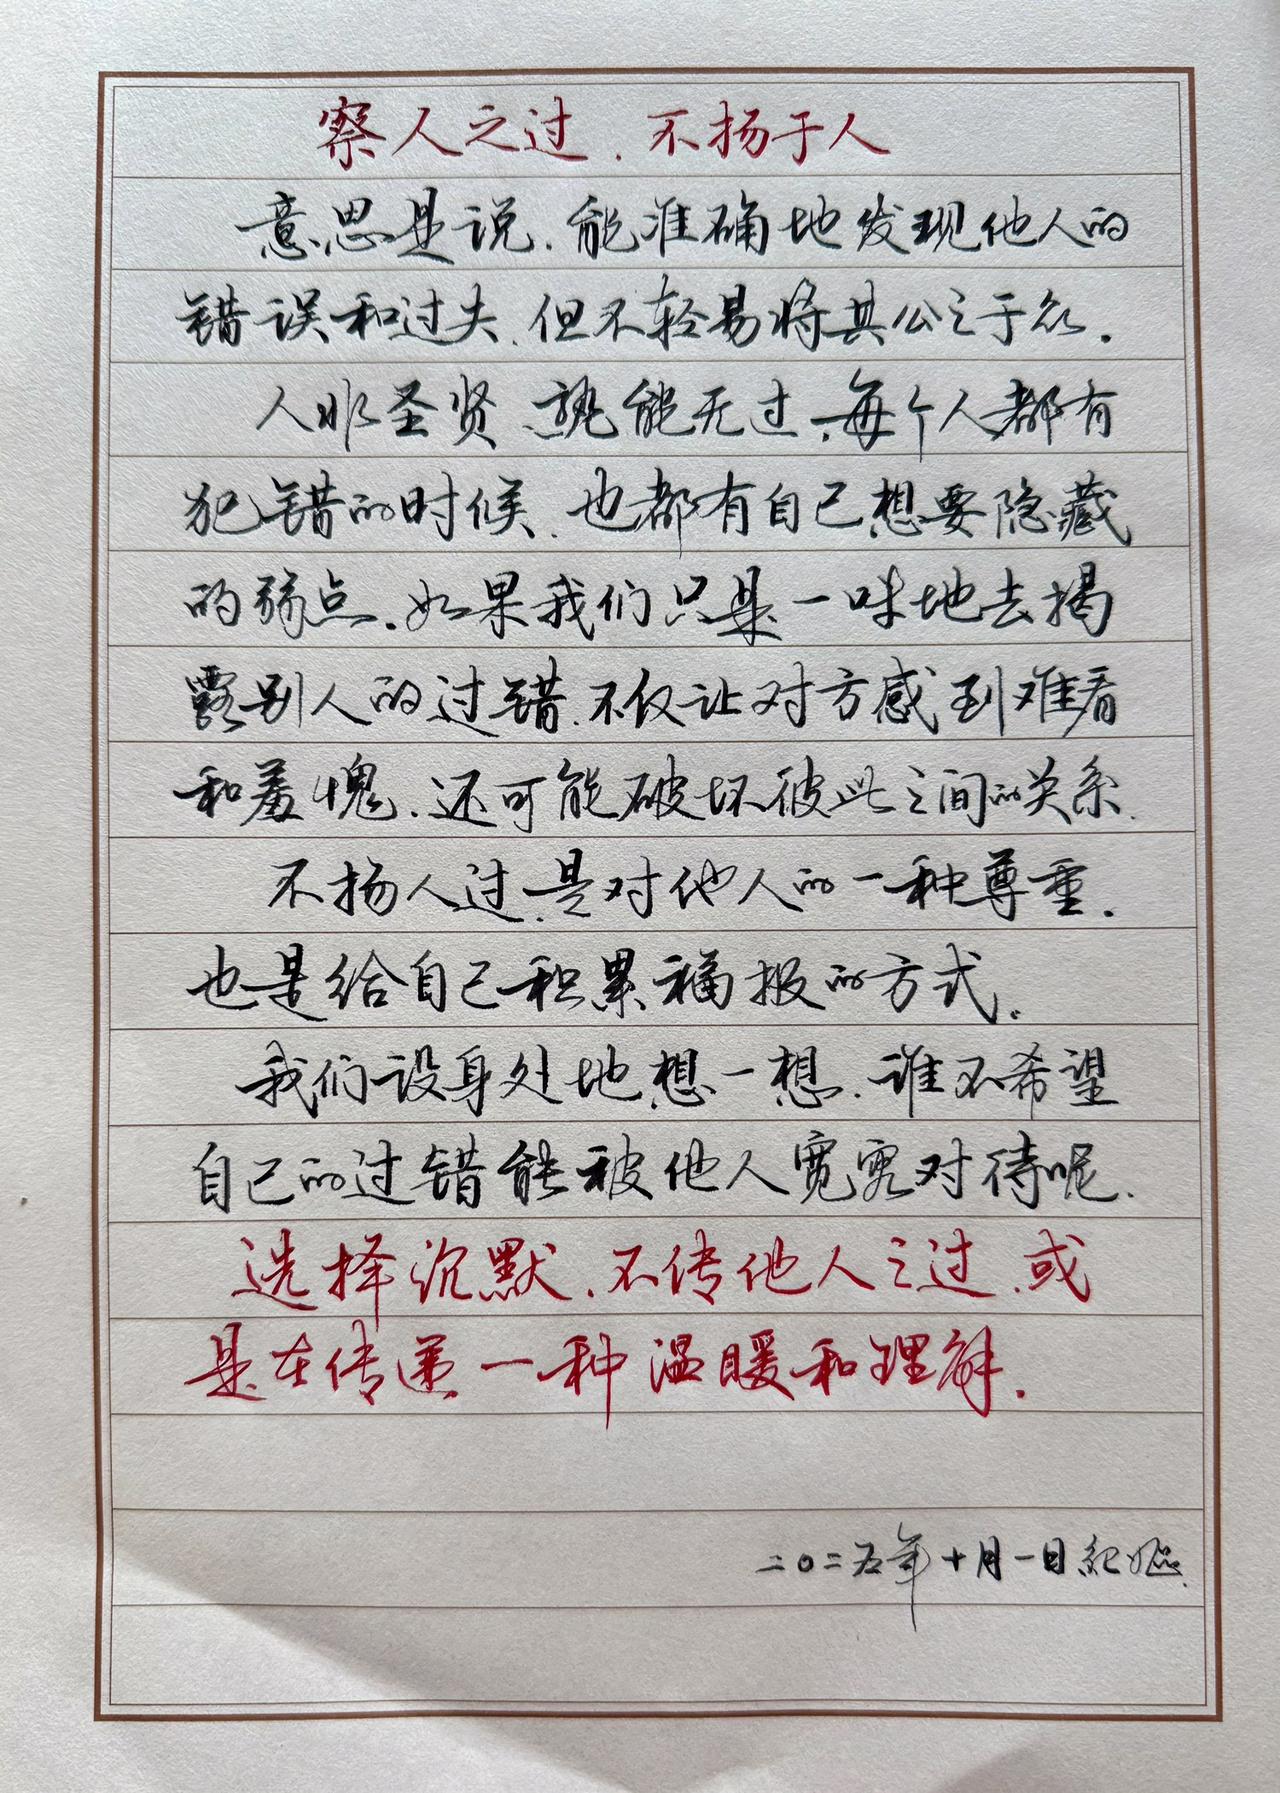 察人之过、不扬于人
意思是说、能准确地发现他人的
错误和过失、但不轻易将其公之于众。
人非圣贤、孰能无过、每个人都有
犯错的时候、也都有自己想要隐藏
的弱点。如果我们只是一味地去揭
露别人的过错、不仅让对方感到难看
和羞愧、还可能破坏彼此之间的关系.
不扬人过、是对他人的一种尊重.
也是给自己积累福报的方式。
我们设身处地想一想、谁不希望
自己的过错能被他人宽容对待呢.
选择沉默、不传他人之过、或
是在传递一种温暖和理解.
二〇二五年十月一日